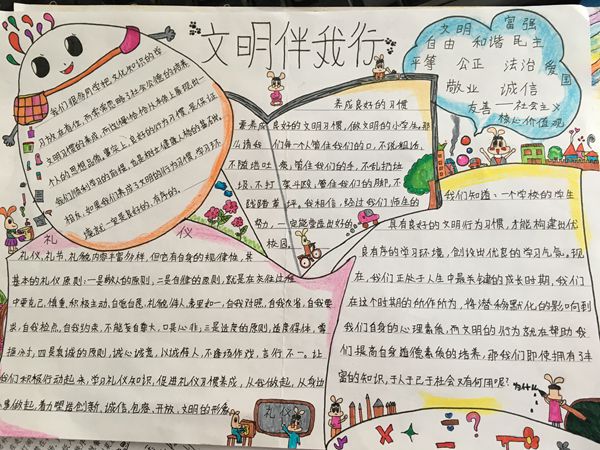 文明伴我行
文明 富强
自由 和谐 民主
平等 公正 法治 爱国
敬业 诚信
友善——社会主义
核心价值观
我们很多同学把文化知识的学
习放在首位,而常常忽略了社会公德的培养
文明习惯的养成,而这恰恰从本质上展现出一
个人的思想品德。事实上,良好的行为习惯,是保证
我们顺利学习的前提,也是树立健康人格的基础。
相反,如果我们养成了文明的行为习惯,学习环
境就一定是良好的,有序的。
养成良好的习惯
要养成良好的文明习惯,做文明的小学生。那
么请我们每一个人管住我们的口,不说粗话,
不随地吐痰;管住我们的手,不乱扔垃
圾,不打架斗殴,管住我们的脚,不
践踏草坪。我相信,经过我们师生的
努力,一定能营造出好的
校园。
我们知道、一个学校的学生
具有良好的文明行为习惯,才能构建出优
良有序的学习环境,创设出优良的学习气氛。现
在,我们正处于人生中最关键的成长时期,我们
在这个时期的所作所为,将潜移默化的影响到
我们自身的心理素质,而文明的行为就在帮助我
们提高自身道德素质的培养,那我们即使拥有丰
富的知识,于人于己于社会又有何用呢?
礼仪
礼仪,礼节,礼貌内容丰富多样,但它有自身的规律性,其
基本的礼仪原则:一是敬人的原则,二是自律的原则,就是在交往过程
中要克己,慎重,积极主动,自觉自愿,礼貌待人,表里如一,自我对照,自我反省,自我要
求,自我检点,自我约束,不能妄自尊大,口是心非,三是适度的原则,适度得体,掌
握分寸;四是真诚的原则,诚心诚意,以诚待人,不逢场作戏,言行不一。让
我们积极行动起来,学习礼仪知识,促进礼仪习惯养成,从我做起,从身边
小事做起,着力塑造创新,诚信,包容,开放,文明的形象
礼仪